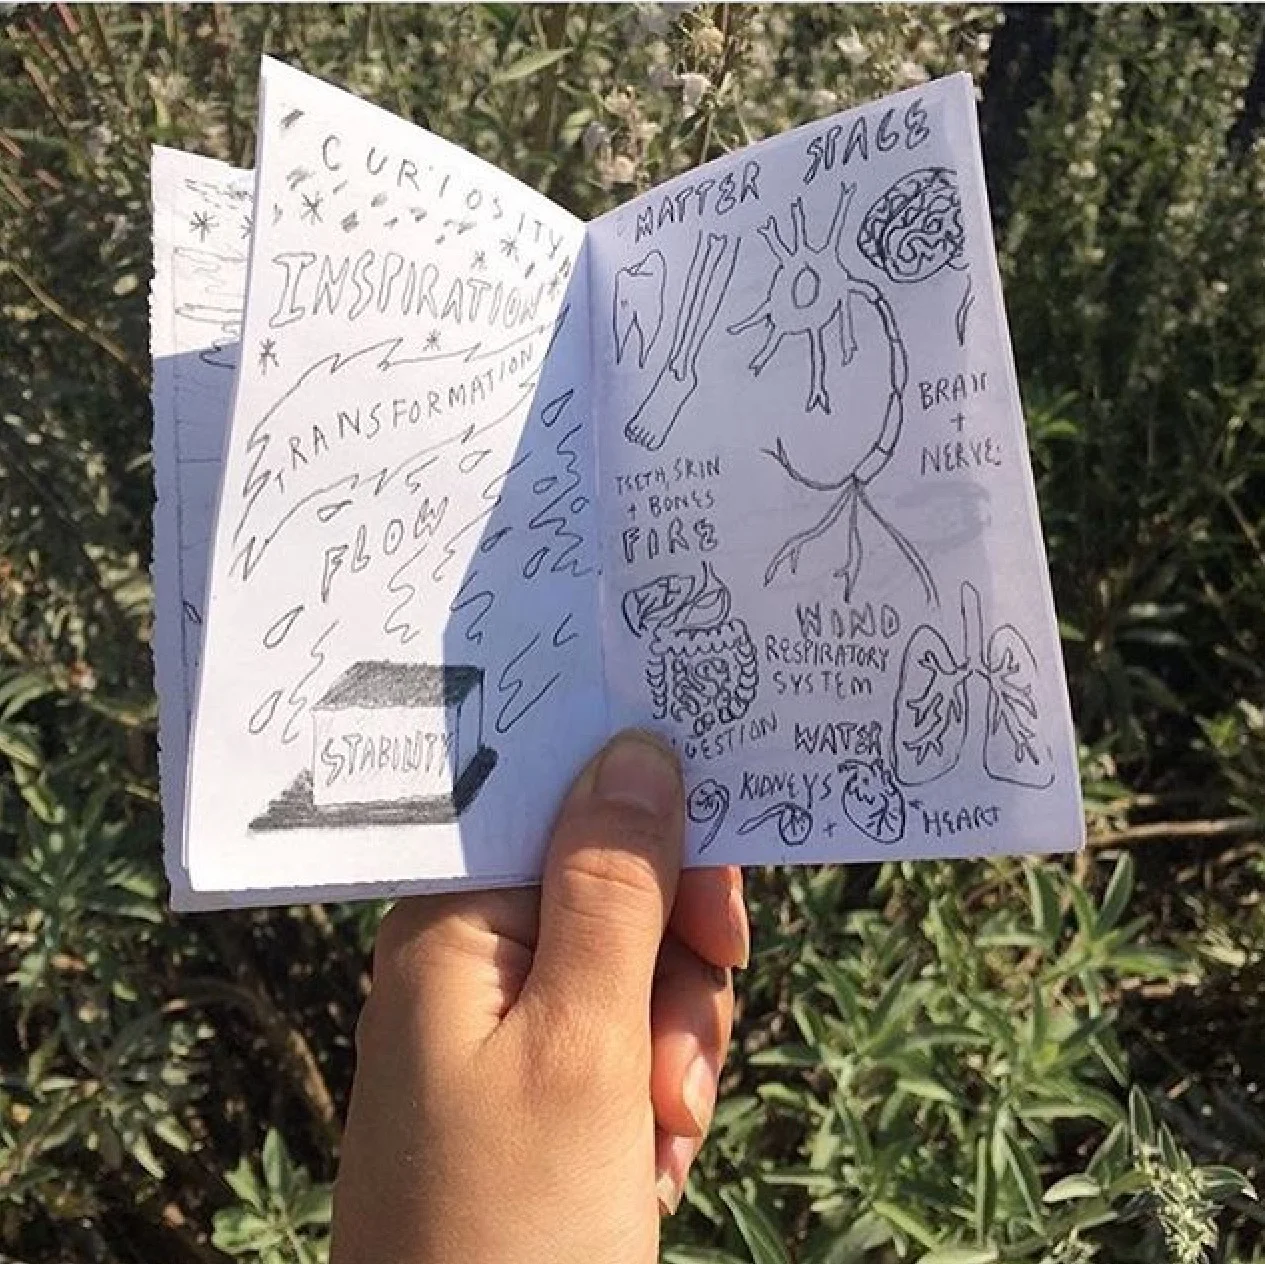 CURIOSITY
INSPIRATION
TRANSFORMATION
FLOW
STABILITY
MATTER SPACE
BRAIN
+
NERVE
TEETH, SKIN
+ BONES
FIRE
WIND
RESPIRATORY
SYSTEM
GESTION
WATER
KIDNEYS
+ HEART